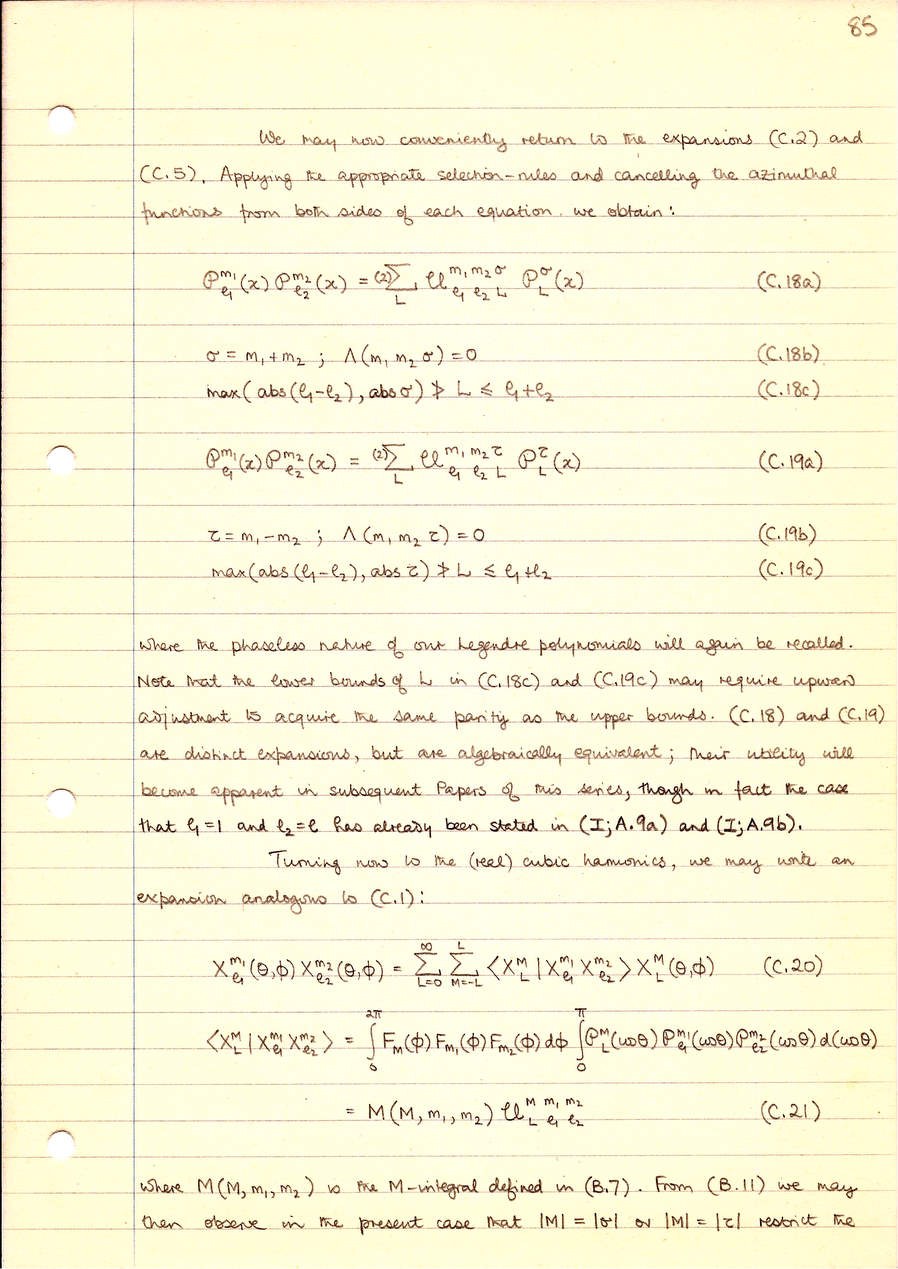 85
We may now conveniently return to the expansions (C.2) and
(C.5). Applying the appropriate selection-rules and cancelling the azimuthal
functions from both sides of each equation, we obtain:
𝒫_{ℓ₁}^{m₁}(x) 𝒫_{ℓ₂}^{m₂}(x) = ⁽²⁾∑_L 𝒰_{ℓ₁ ℓ₂ L}^{m₁ m₂ σ} 𝒫_L^σ(x) (C.18a)
σ = m₁+m₂ ; Λ(m₁ m₂ σ) = 0 (C.18b)
max(abs(ℓ₁-ℓ₂), abs σ) ≯ L ≤ ℓ₁+ℓ₂ (C.18c)
𝒫_{ℓ₁}^{m₁}(x) 𝒫_{ℓ₂}^{m₂}(x) = ⁽²⁾∑_L 𝒰_{ℓ₁ ℓ₂ L}^{m₁ m₂ τ} 𝒫_L^τ(x) (C.19a)
τ = m₁-m₂ ; Λ(m₁ m₂ τ) = 0 (C.19b)
max(abs(ℓ₁-ℓ₂), abs τ) ≯ L ≤ ℓ₁+ℓ₂ (C.19c)
where the phaseless nature of our Legendre polynomials will again be recalled.
Note that the lower bounds of L in (C.18c) and (C.19c) may require upward
adjustment to acquire the same parity as the upper bounds. (C.18) and (C.19)
are distinct expansions, but are algebraically equivalent; their utility will
become apparent in subsequent Papers of this series, though in fact the case
that ℓ₁=1 and ℓ₂=ℓ has already been stated in (I;A.9a) and (I;A.9b).
Turning now to the (real) cubic harmonics, we may write an
expansion analogous to (C.1):
X_{ℓ₁}^{m₁}(θ,ϕ) X_{ℓ₂}^{m₂}(θ,ϕ) = ∑_{L=0}^{∞} ∑_{M=-L}^{L} ⟨X_L^M | X_{ℓ₁}^{m₁} X_{ℓ₂}^{m₂}⟩ X_L^M(θ,ϕ) (C.20)
⟨X_L^M | X_{ℓ₁}^{m₁} X_{ℓ₂}^{m₂}⟩ = ∫_0^{2π} F_M(ϕ) F_{m₁}(ϕ) F_{m₂}(ϕ) dϕ ∫_0^π 𝒫_L^M(cosθ) 𝒫_{ℓ₁}^{m₁}(cosθ) 𝒫_{ℓ₂}^{m₂}(cosθ) d(cosθ)
= M(M, m₁, m₂) 𝒰_{L ℓ₁ ℓ₂}^{M m₁ m₂} (C.21)
where M(M, m₁, m₂) is the M-integral defined in (B.7). From (B.11) we may
then observe in the present case that |M| = |σ| or |M| = |τ| restrict the